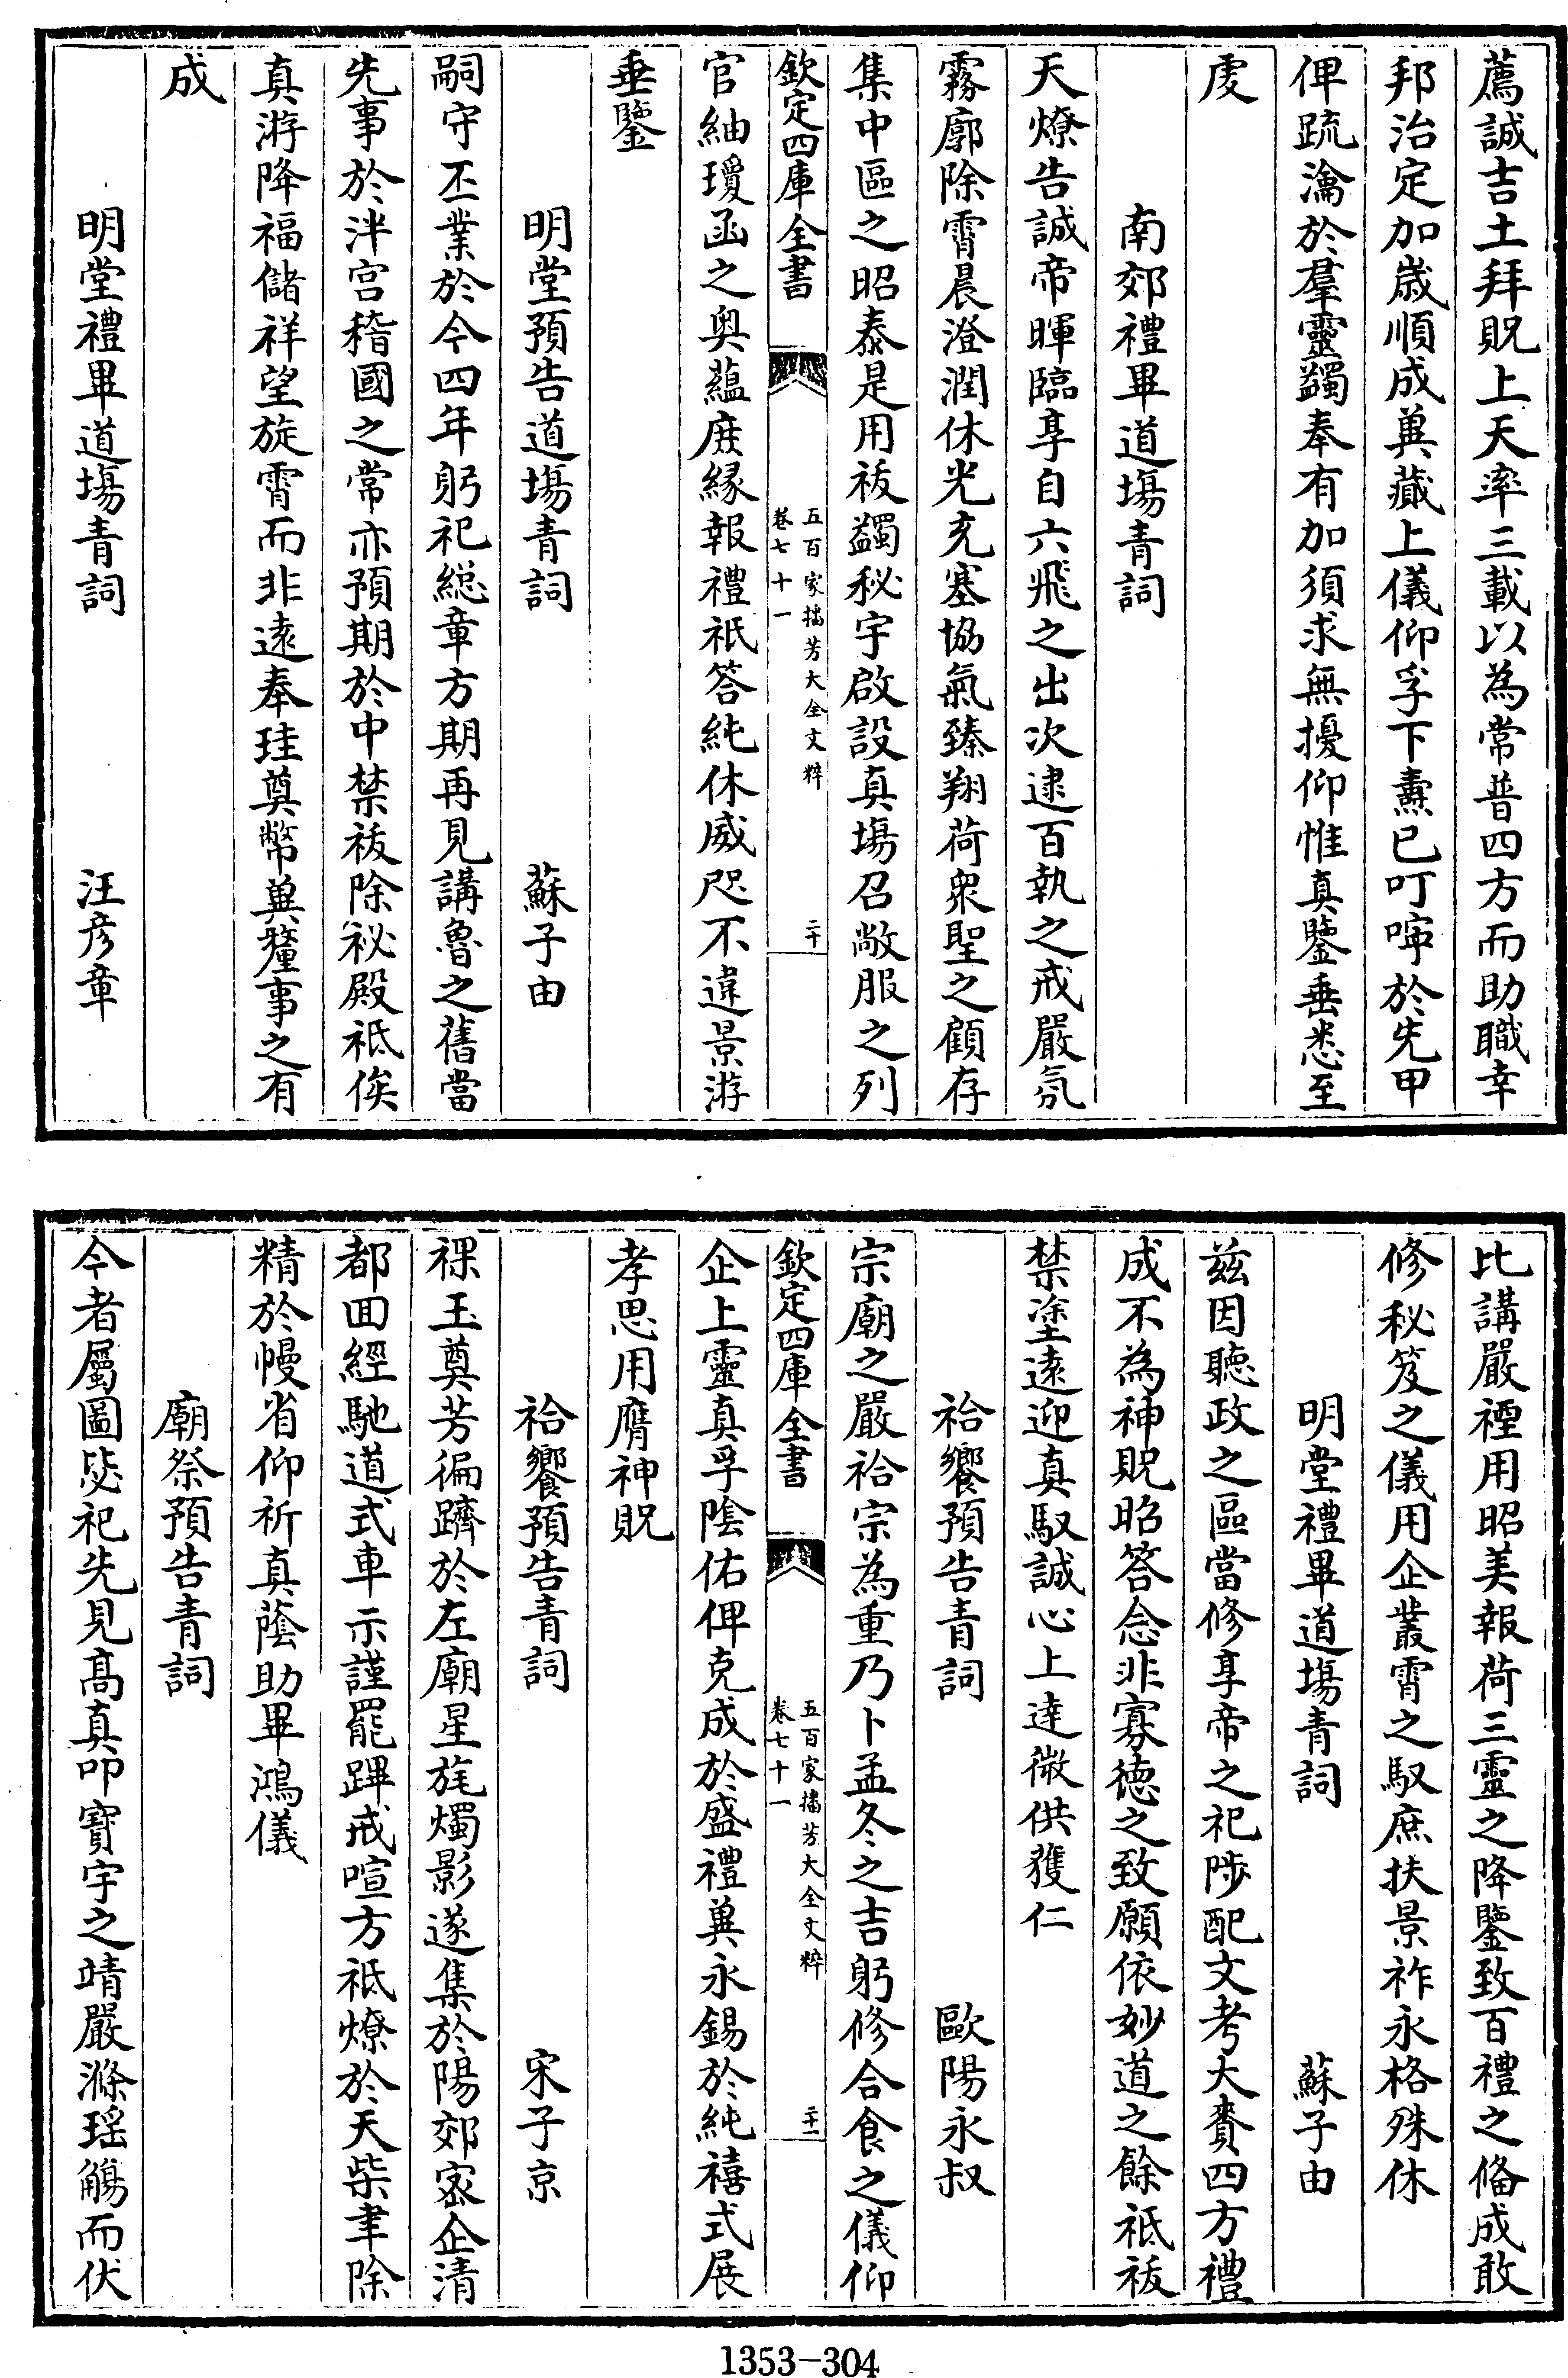 薦誠吉土拜貺上天率三載以為常普四方而助職幸
邦治定加歳順成兾藏上儀仰孚下燾已叮嚀於先甲
俾疏瀹於羣靈蠲奉有加須求無擾仰惟真鑒垂悉至
虔
南郊禮畢道塲青詞
天燎告誠帝暉臨享自六飛之出次逮百執之戒嚴氛
霧廓除霄晨澄潤休光充塞協氣臻翔荷衆聖之顧存
集中區之昭泰是用祓蠲秘宇啟設真塲召敞服之列
欽定四庫全書
五百家播芳大全文粹
卷七十一
二十
官紬瓊函之奥蘊庻縁報禮祇答純休威咫不違景游
垂鑒
明堂預告道塲青詞
蘇子由
嗣守丕業於今四年躬祀總章方期再見講魯之舊當
先事於泮宫稽國之常亦預期於中禁祓除祕殿祗俟
真游降福儲祥望旋霄而非遠奉珪奠幣兾釐事之有
成
明堂禮畢道塲青詞
汪彦章
比講嚴禋用昭美報荷三靈之降鑒致百禮之偹成敢
修秘笈之儀用企叢霄之馭庶扶景祚永格殊休
明堂禮畢道塲青詞
蘇子由
兹因聽政之區當修享帝之祀陟配文考大賚四方禮
成不為神貺昭答念非寡徳之致願依妙道之餘祗祓
禁塗遠迎真馭誠心上達微供獲仁
祫饗預告青詞
歐陽永叔
宗廟之嚴祫宗為重乃卜孟冬之吉躬修合食之儀仰
欽定四庫全書
五百家播芳大全文粹
卷七十一
二十一
企上靈真孚陰佑俾克成於盛禮兾永錫於純禧式展
孝思用膺神貺
祫饗預告青詞
宋子京
祼玉奠芳徧躋於左廟星旄燭影遂集於陽郊宻企清
都囬經馳道式車示謹罷蹕戒喧方祗燎於天柴聿除
精於幔省仰祈真蔭助畢鴻儀
廟祭預告青詞
今者屬圖毖祀先見髙真叩寳宇之靖嚴滌瑶觴而伏
1353-304